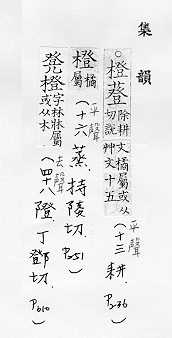 集韻
○橙䔲 除耕切說文橘屬或从艸文十五 (平聲十三耕. P.236)
橙 橘屬 (平聲十六蒸. 持陵切. P.251)
凳橙 字林牀屬或从木 (去聲四十八隥. 丁鄧切. P.610)